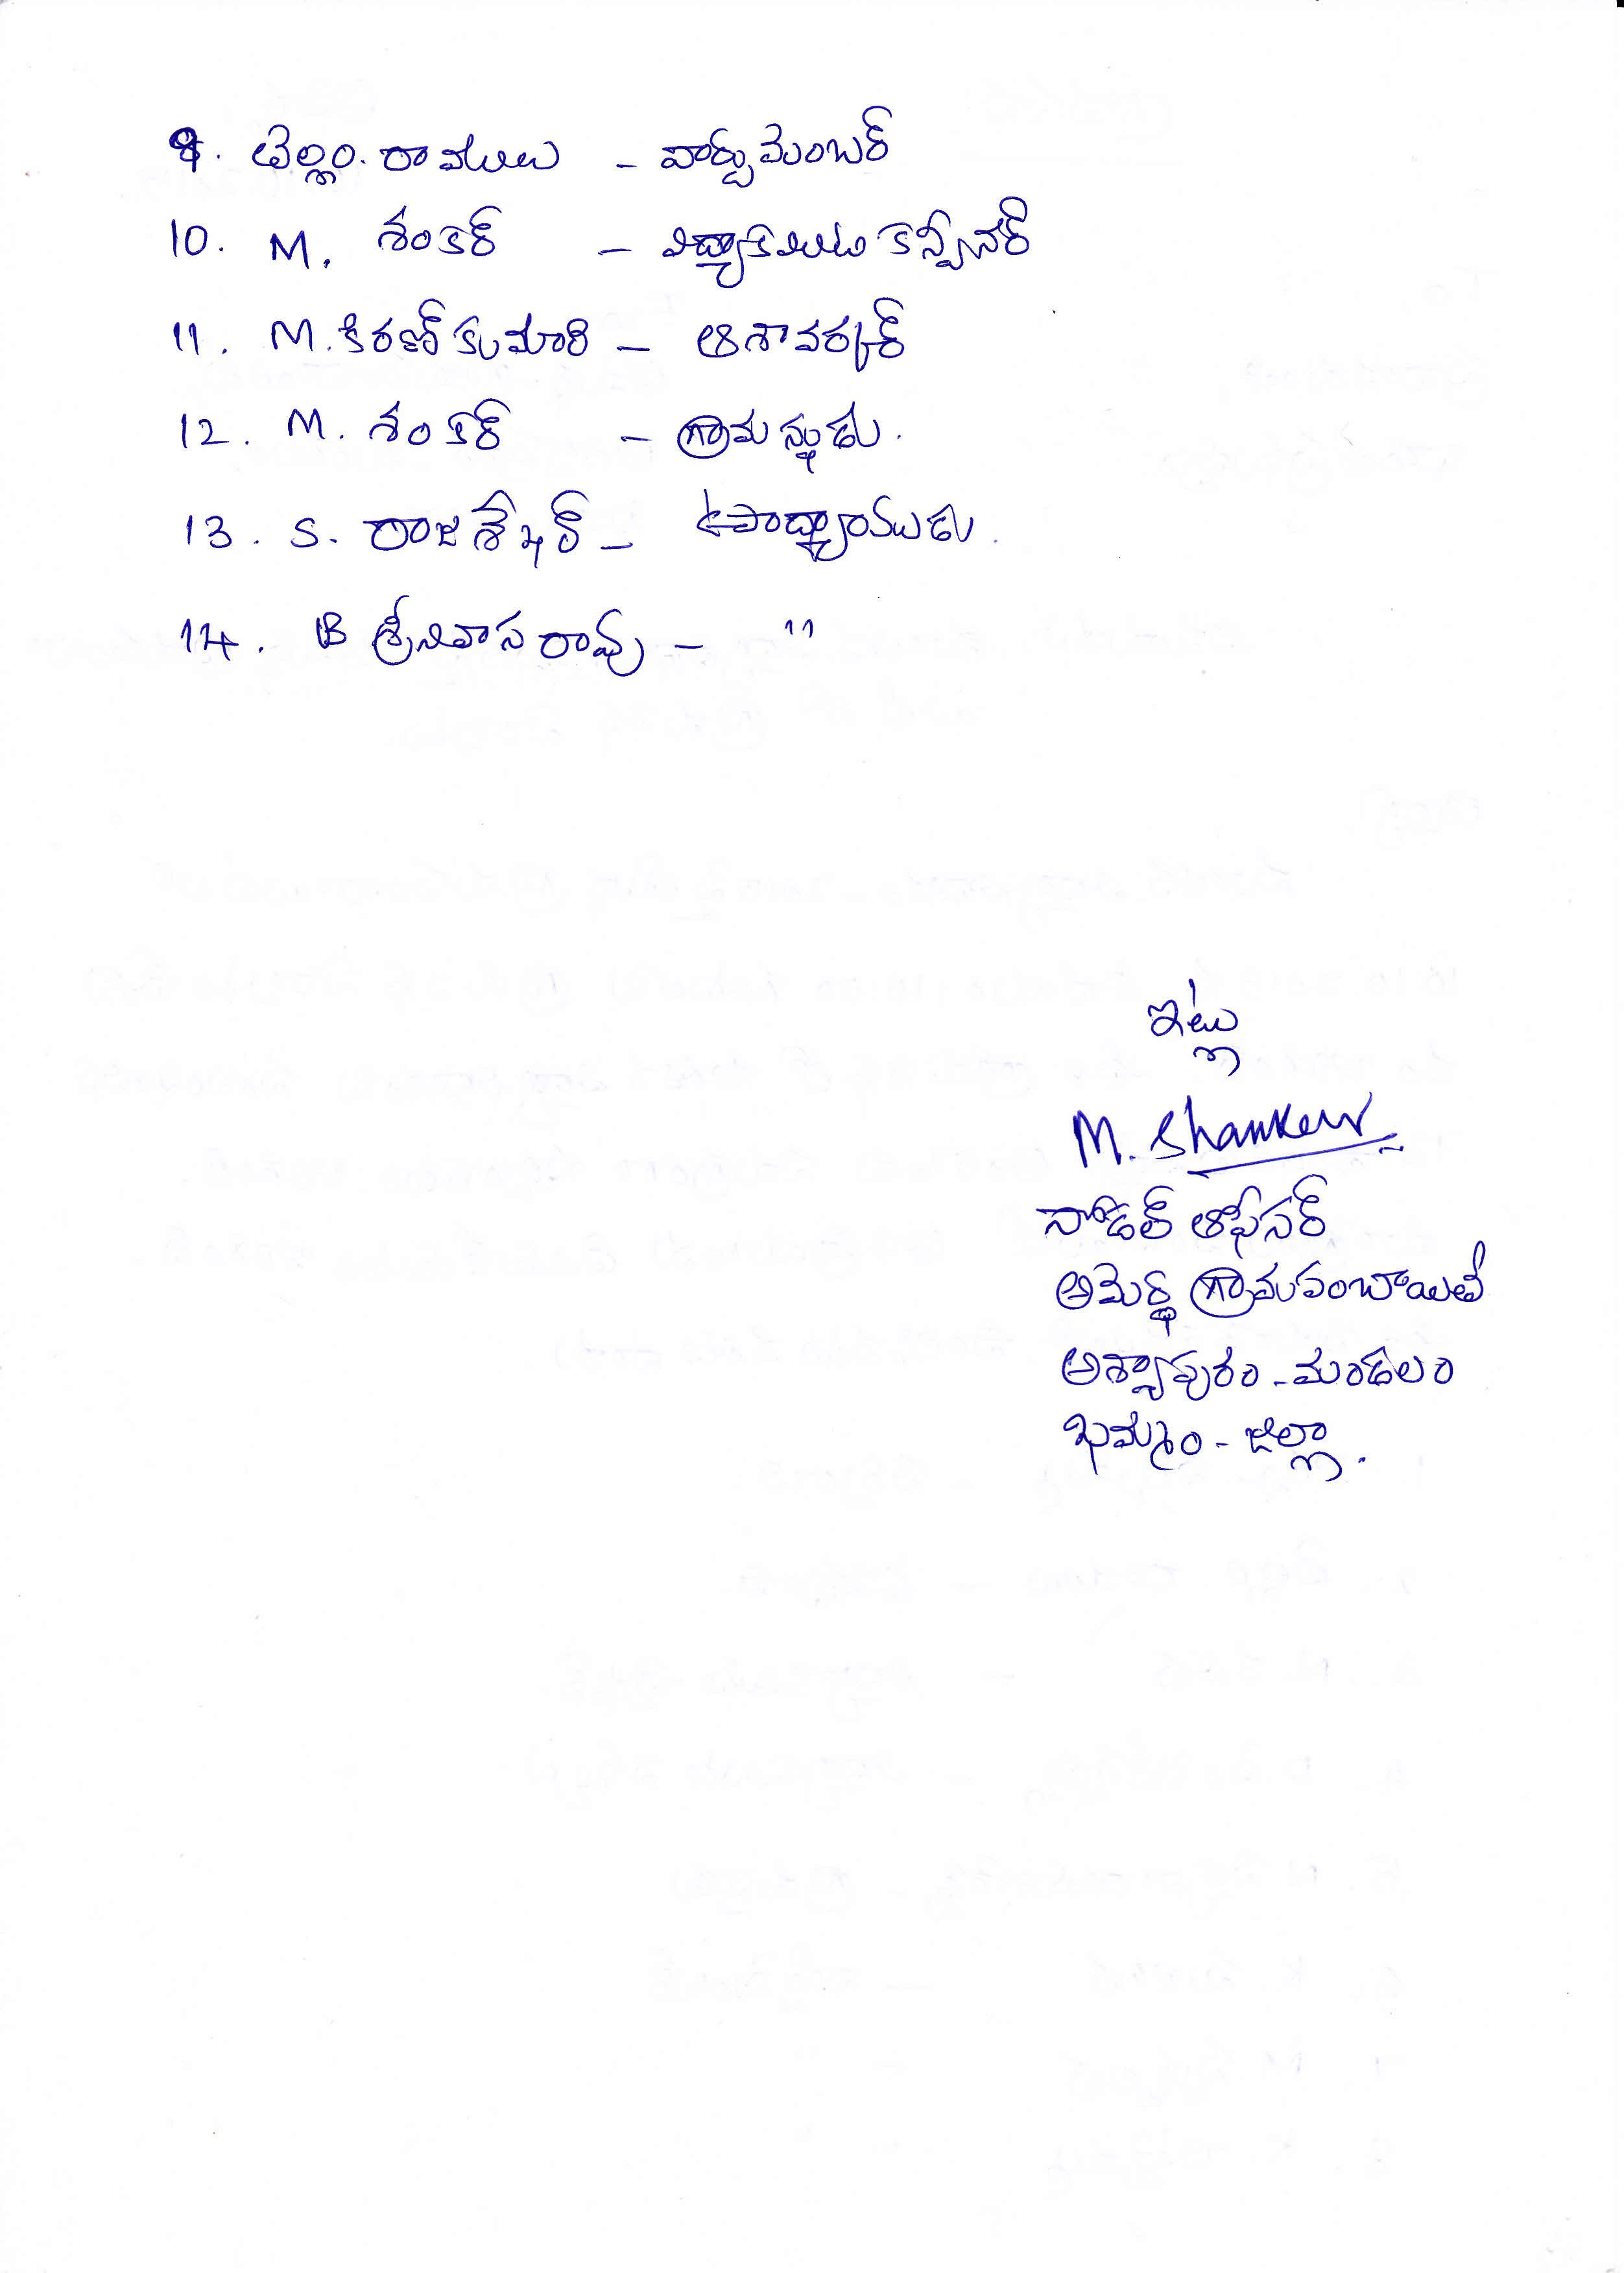 9. తెల్లం. రాములు - వార్డుమెంబర్
10. M. శంకర్ - విద్యాకమిటి కన్వీనర్
11. M. కిరణ్ కుమారి - ఆశావర్కర్
12. M. శంకర్ - గ్రామస్థుడు.
13. S. రాజశేఖర్ - ఉపాధ్యాయుడు.
14. B శ్రీనివాసరావు - "
ఇట్లు
M. Shanker
నోడల్ ఆఫీసర్
అమెర్ధ గ్రామపంచాయితీ
అశ్వాపురం - మండలం
ఖమ్మం - జిల్లా.